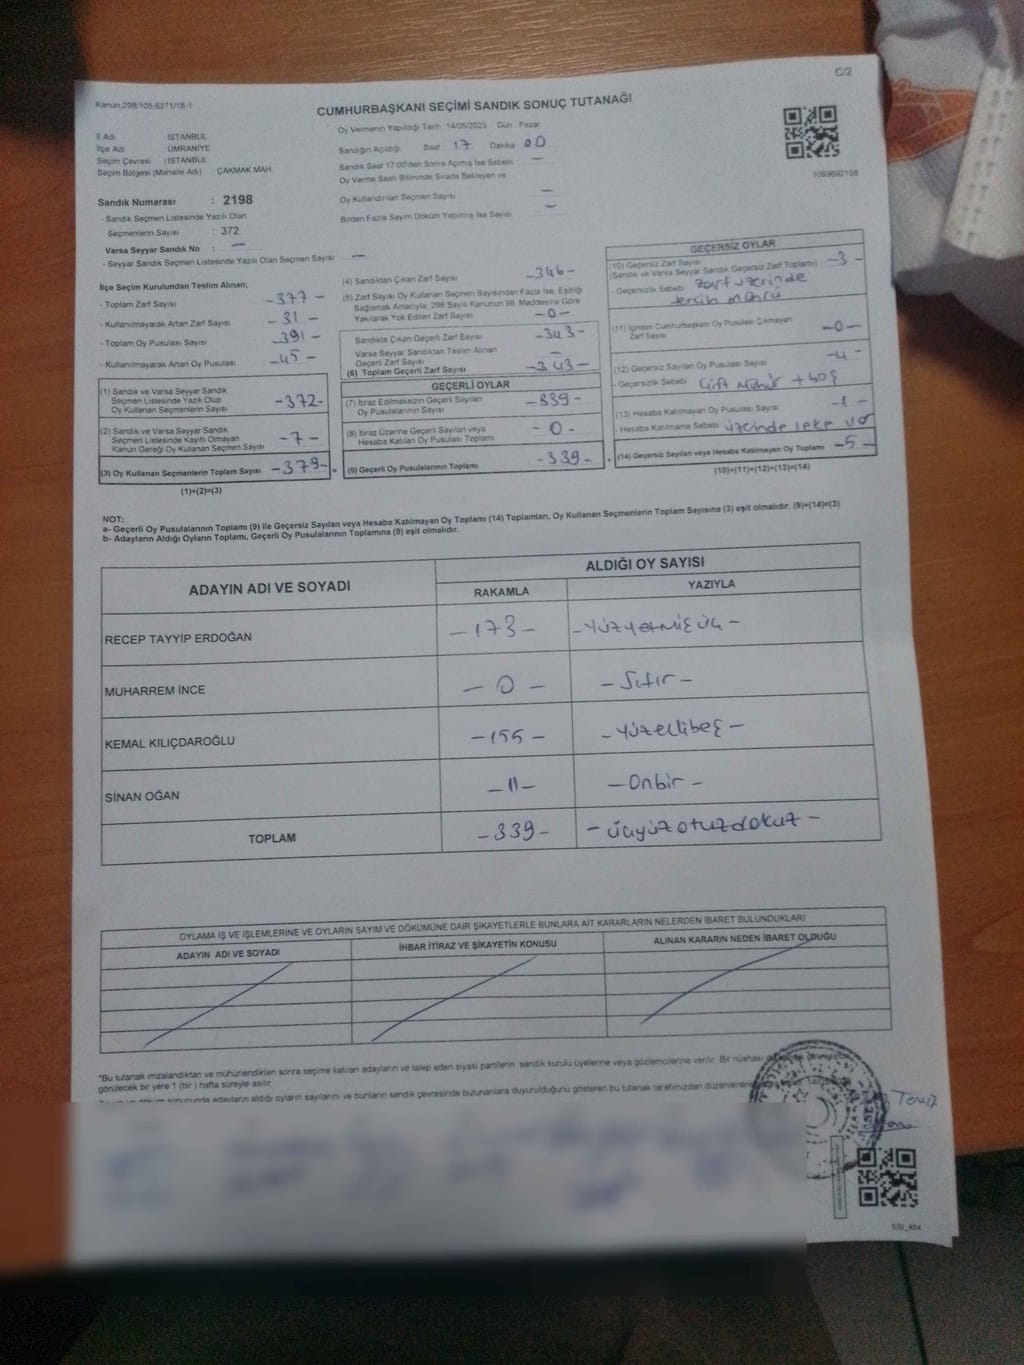 C/2
Kanun:298/105;6271/18-1
CUMHURBAŞKANI SEÇİMİ SANDIK SONUÇ TUTANAĞI
Oy Vermenin Yapıldığı Tarih :14/05/2023 Gün : Pazar
İl Adı İSTANBUL
İlçe Adı ÜMRANİYE
Seçim Çevresi : İSTANBUL
Seçim Bölgesi (Mahalle Adı) : ÇAKMAK MAH.
Sandığın Açıldığı Saat : 17 Dakika : 00
Sandık Saat 17:00'den Sonra Açmış İse Sebebi : —
Oy Verme Saati Bitiminde Sırada Bekleyen ve
Oy Kullandırılan Seçmen Sayısı —
Birden Fazla Sayım Döküm Yapılmış İse Sayısı —
1093692198
Sandık Numarası : 2198
- Sandık Seçmen Listesinde Yazılı Olan
Seçmenlerin Sayısı : 372
Varsa Seyyar Sandık No : —
- Seyyar Sandık Seçmen Listesinde Yazılı Olan Seçmen Sayısı: —
İlçe Seçim Kurulundan Teslim Alınan;
- Toplam Zarf Sayısı -377-
- Kullanılmayarak Artan Zarf Sayısı -31-
- Toplam Oy Pusulası Sayısı -391-
- Kullanılmayarak Artan Oy Pusulası -45-
(1) Sandık ve Varsa Seyyar Sandık
Seçmen Listesinde Yazılı Olup
Oy Kullanan Seçmenlerin Sayısı -372-
(2) Sandık ve Varsa Seyyar Sandık
Seçmen Listesinde Kayıtlı Olmayan
Kanun Gereği Oy Kullanan Seçmen Sayısı -7-
(3) Oy Kullanan Seçmenlerin Toplam Sayısı -379- =
(1)+(2)=(3)
(4) Sandıktan Çıkan Zarf Sayısı -346-
(5) Zarf Sayısı Oy Kullanan Seçmen Sayısından Fazla İse, Eşitliği
Sağlamak Amacıyla, 298 Sayılı Kanunun 98. Maddesine Göre
Yakılarak Yok Edilen Zarf Sayısı -0-
Sandıkta Çıkan Geçerli Zarf Sayısı -343-
Varsa Seyyar Sandıktan Teslim Alınan
Geçerli Zarf Sayısı —
(6) Toplam Geçerli Zarf Sayısı -343-
GEÇERLİ OYLAR
(7) İtiraz Edilmeksizin Geçerli Sayılan
Oy Pusulalarının Sayısı -339-
(8) İtiraz Üzerine Geçerli Sayılan veya
Hesaba Katılan Oy Pusulası Toplamı -0-
(9) Geçerli Oy Pusulalarının Toplamı -339- +
GEÇERSİZ OYLAR
(10) Geçersiz Zarf Sayısı
(Sandık ve Varsa Seyyar Sandık Geçersiz Zarf Toplamı) -3-
- Geçersizlik Sebebi : zarf üzerinde
tercih mührü
(11) İçinden Cumhurbaşkanı Oy Pusulası Çıkmayan
Zarf Sayısı -0-
(12) Geçersiz Sayılan Oy Pusulası Sayısı -4-
- Geçersizlik Sebebi Çift mühür + boş
(13) Hesaba Katılmayan Oy Pusulası Sayısı -1-
- Hesaba Katılmama Sebebi : üzerinde leke var
(14) Geçersiz Sayılan veya Hesaba Katılmayan Oy Toplamı -5-
(10)+(11)+(12)+(13)=(14)
NOT:
a- Geçerli Oy Pusulalarının Toplamı (9) ile Geçersiz Sayılan veya Hesaba Katılmayan Oy Toplamı (14) Toplamları, Oy Kullanan Seçmenlerin Toplam Sayısına (3) eşit olmalıdır. (9)+(14)=(3)
b- Adayların Aldığı Oyların Toplamı, Geçerli Oy Pusulalarının Toplamına (9) eşit olmalıdır.
ADAYIN ADI VE SOYADI ALDIĞI OY SAYISI
RAKAMLA YAZIYLA
RECEP TAYYİP ERDOĞAN -173- -Yüzyetmişüç-
MUHARREM İNCE -0- -Sıfır-
KEMAL KILIÇDAROĞLU -155- -Yüzellibeş-
SİNAN OĞAN -11- -Onbir-
TOPLAM -339- -üçyüzotuzdokuz-
OYLAMA İŞ VE İŞLEMLERİNE VE OYLARIN SAYIM VE DÖKÜMÜNE DAİR ŞİKAYETLERLE BUNLARA AİT KARARLARIN NELERDEN İBARET BULUNDUKLARI
ADAYIN ADI VE SOYADI İHBAR İTİRAZ VE ŞİKAYETİN KONUSU ALINAN KARARIN NEDEN İBARET OLDUĞU
*Bu tutanak imzalandıktan ve mühürlendikten sonra seçime katılan adayların ve talep eden siyasi partilerin sandık kurulu üyelerine veya gözlemcilerine verilir. Bir nüshası
görülecek bir yere 1 (bir) hafta süreyle asılır.
sonucunda adayların aldığı oyların sayılarını ve bunların sandık çevresinde bulunanlara duyurulduğunu gösteren bu tutanak tarafımızdan